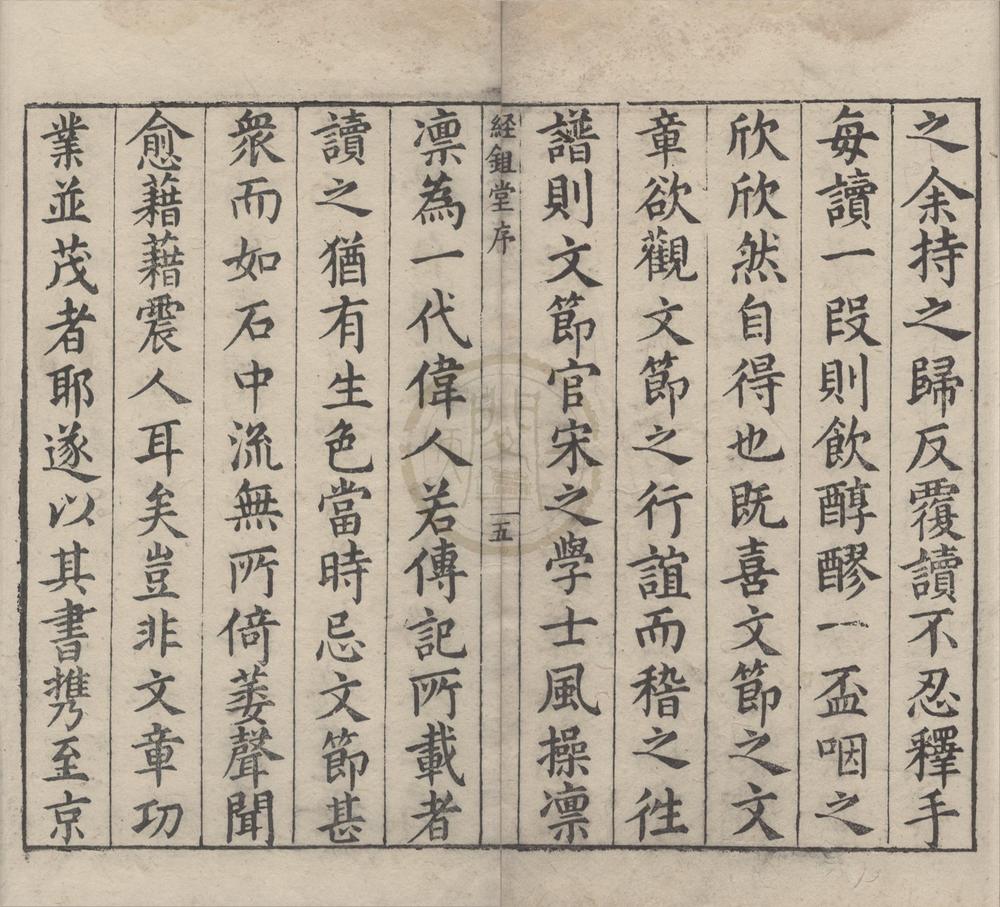 之余持之歸反覆讀不忍釋手
每讀一段則飲醇醪一盃咽之
欣欣然自得也既喜文節之文
章欲觀文節之行誼而稽之往
譜則文節官宋之學士風操凛
経鉏堂序
五
凛為一代偉人若傳記所載者
讀之猶有生色當時忌文節甚
衆而如石中流無所倚萎聲聞
愈藉藉震人耳矣豈非文章功
業並茂者耶遂以其書携至京